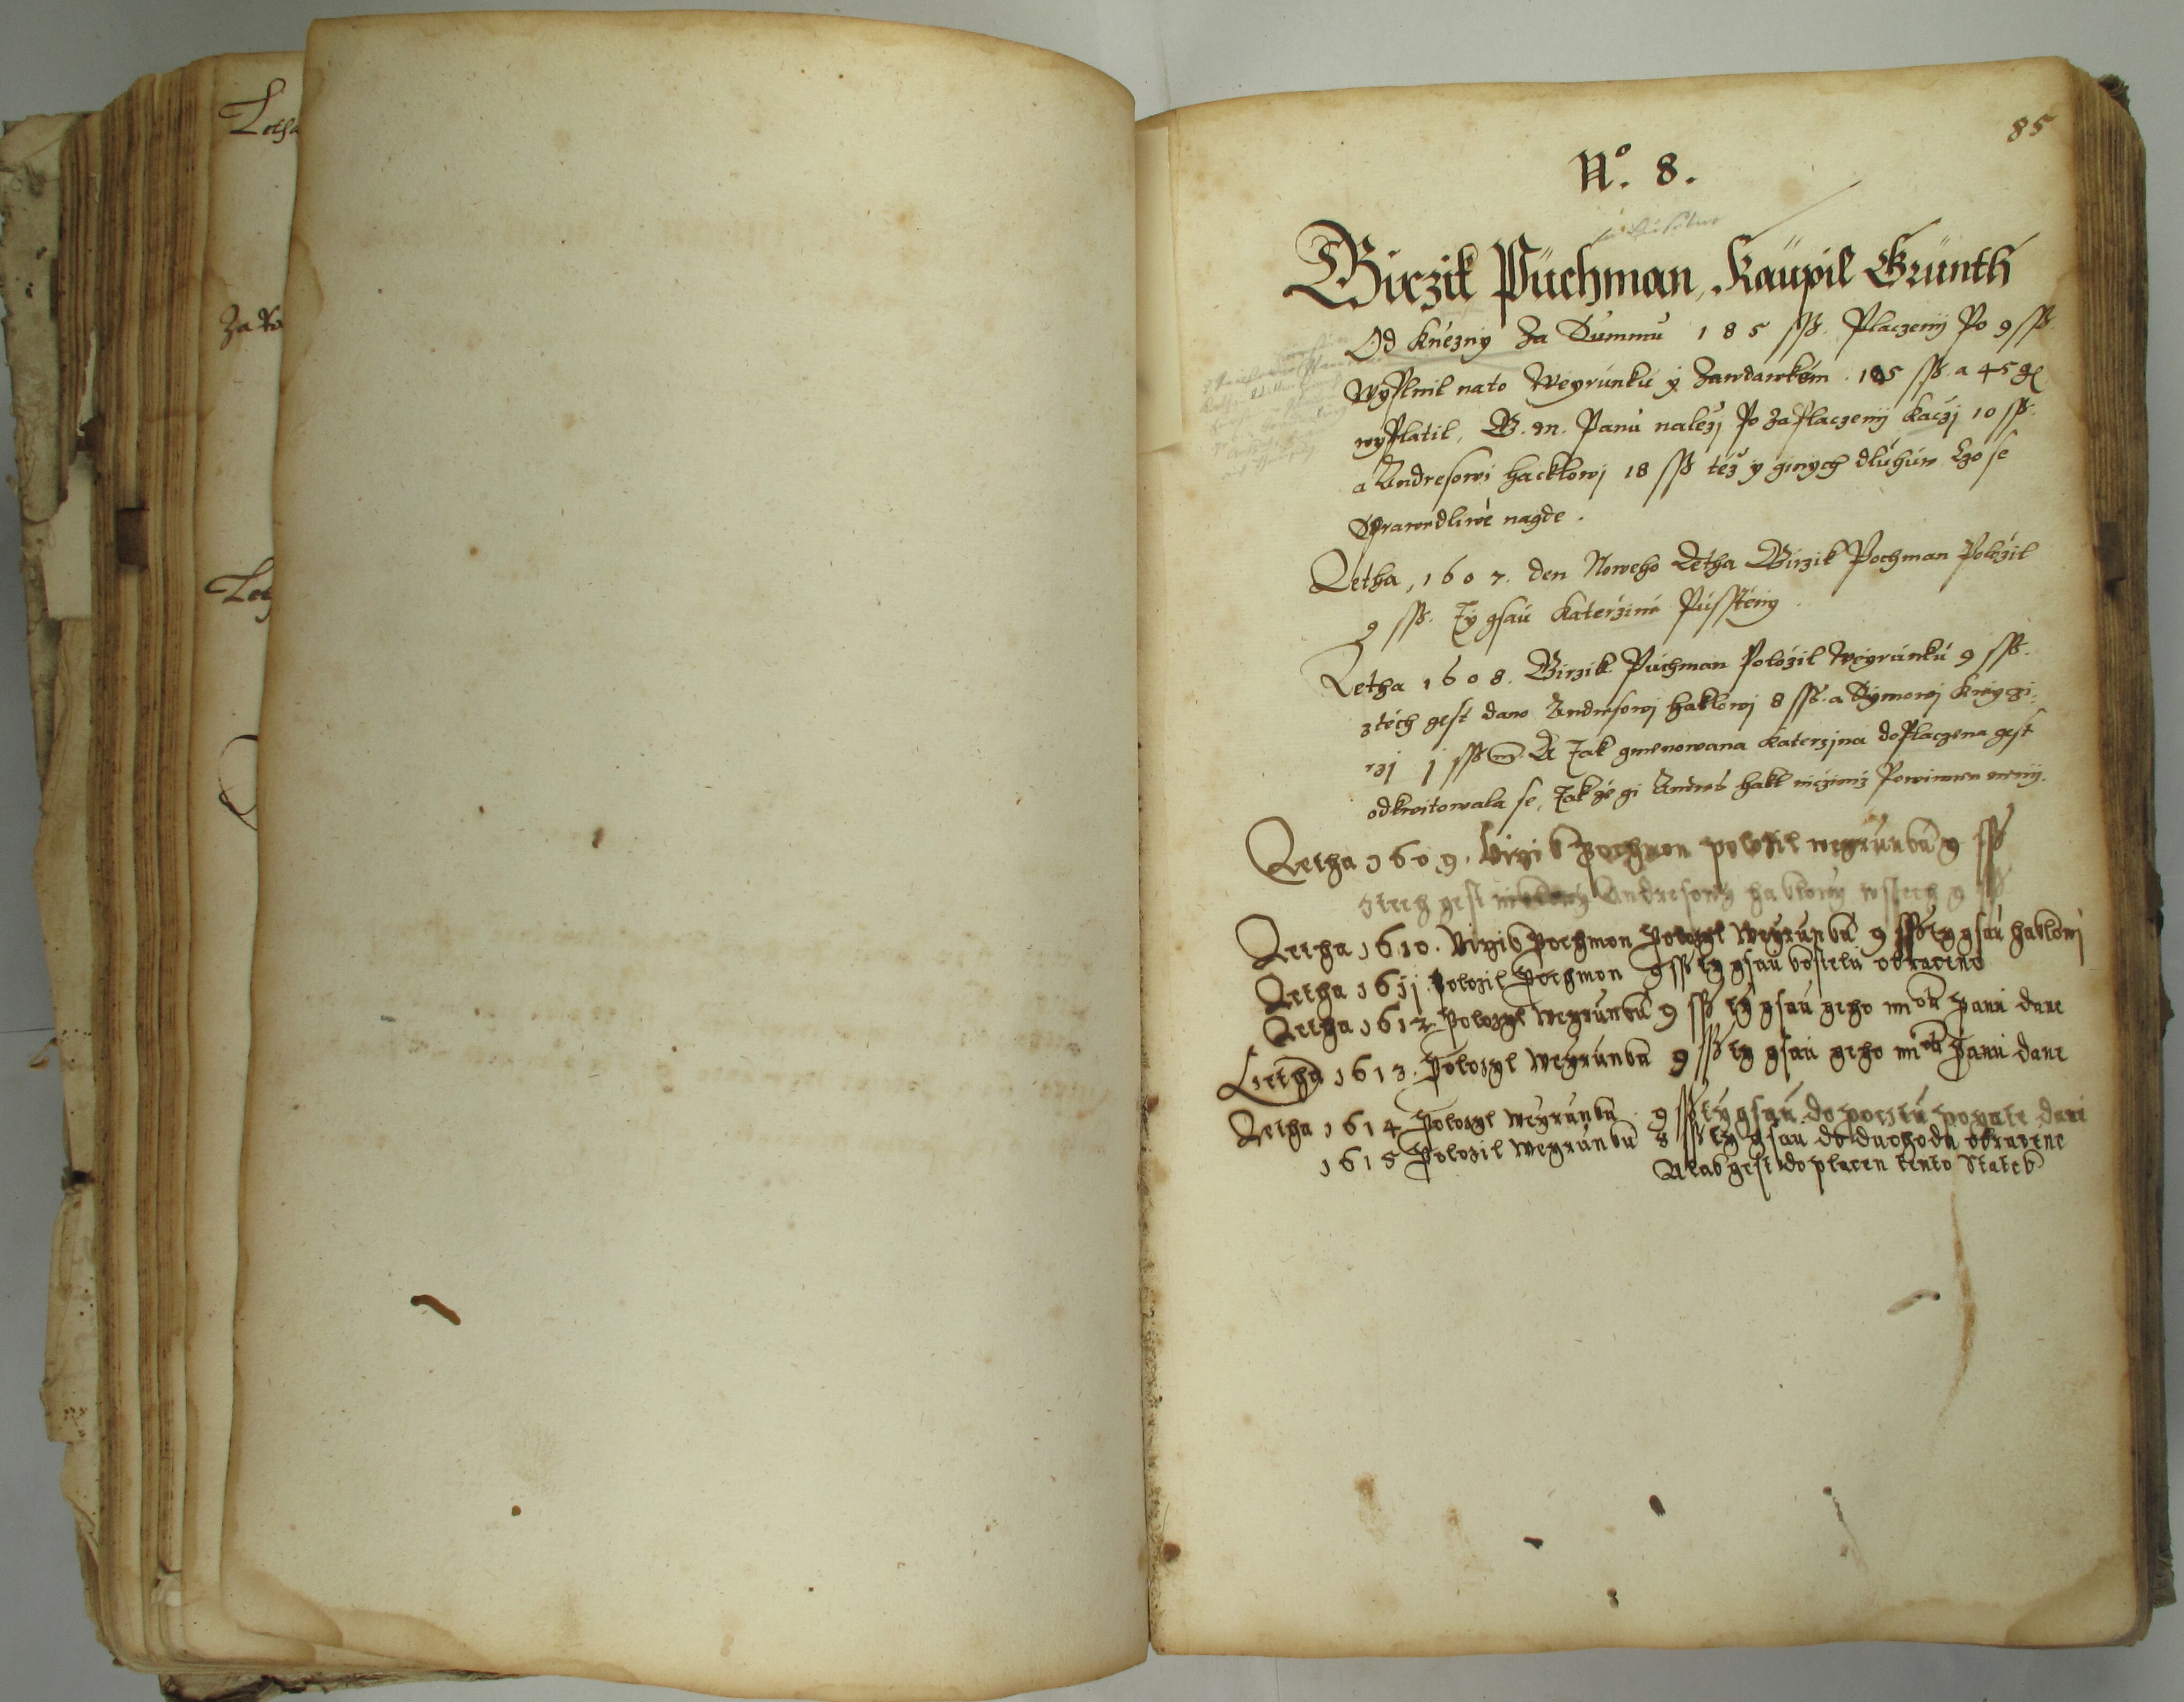 Letha
Za
Let
85
No. 8.
Girzik Půchman, Kaupil Grůnth
Od Knězny Za Summu 185 ssß. Placzenij Po 9 ssß
Wyplnil nato Weyrunku y Zawdawkem. 105 ssß. a 45 gr
wyplatil, G. M. Panu naležj Po Zaplaczenij Kaczj 10 ssß.
a Andresowi Hacklowj 18 ssß též y ginych dluhuw Czo se
Sprawedliwě nagde.
Letha, 1607. den Noweho Letha Girzik Pochman Položil
9 ssß. Ty gsau Kateržině Pussstěny
Letha 1608. Girzik Puchman Položil Weyrunku 9 ssß.
z těch gest dano Andresowj Haklowj 8 ssß. a Symowj Kreyczi:
rzj j ssß m. A Tak gmenowana Katerzjna doplaczena gest
odkwitowala se, Takže gi Andres Hakl ničimž Powinen nenij.
Letha 1609. Girzik Pochman položil weyrunku 9 ssß
ztech gest Andresowy haklowy wssech 9 ssß
Letha 1610. Girzik Pochman Položyl Weyrunku 9 ssß ty gsau haklowj
Letha 1611 Položil Pochman 9 ssß ty gsau kostelu obraceno
Letha 1612 Položyl Weyrunku 9 ssß ty gsau geho mti Panu dane
Letha 1613. Položyl Weyrunku 9 ssß ty gsau geho mti Panu dane
Letha 1614 Položyl Weyrunku 9 ssß ty gsau do pocztu pogate dani
1615 Položil Weyrunku 8 ssß ty gsau do duchodu obracene
A tak gest doplacen tento Statek